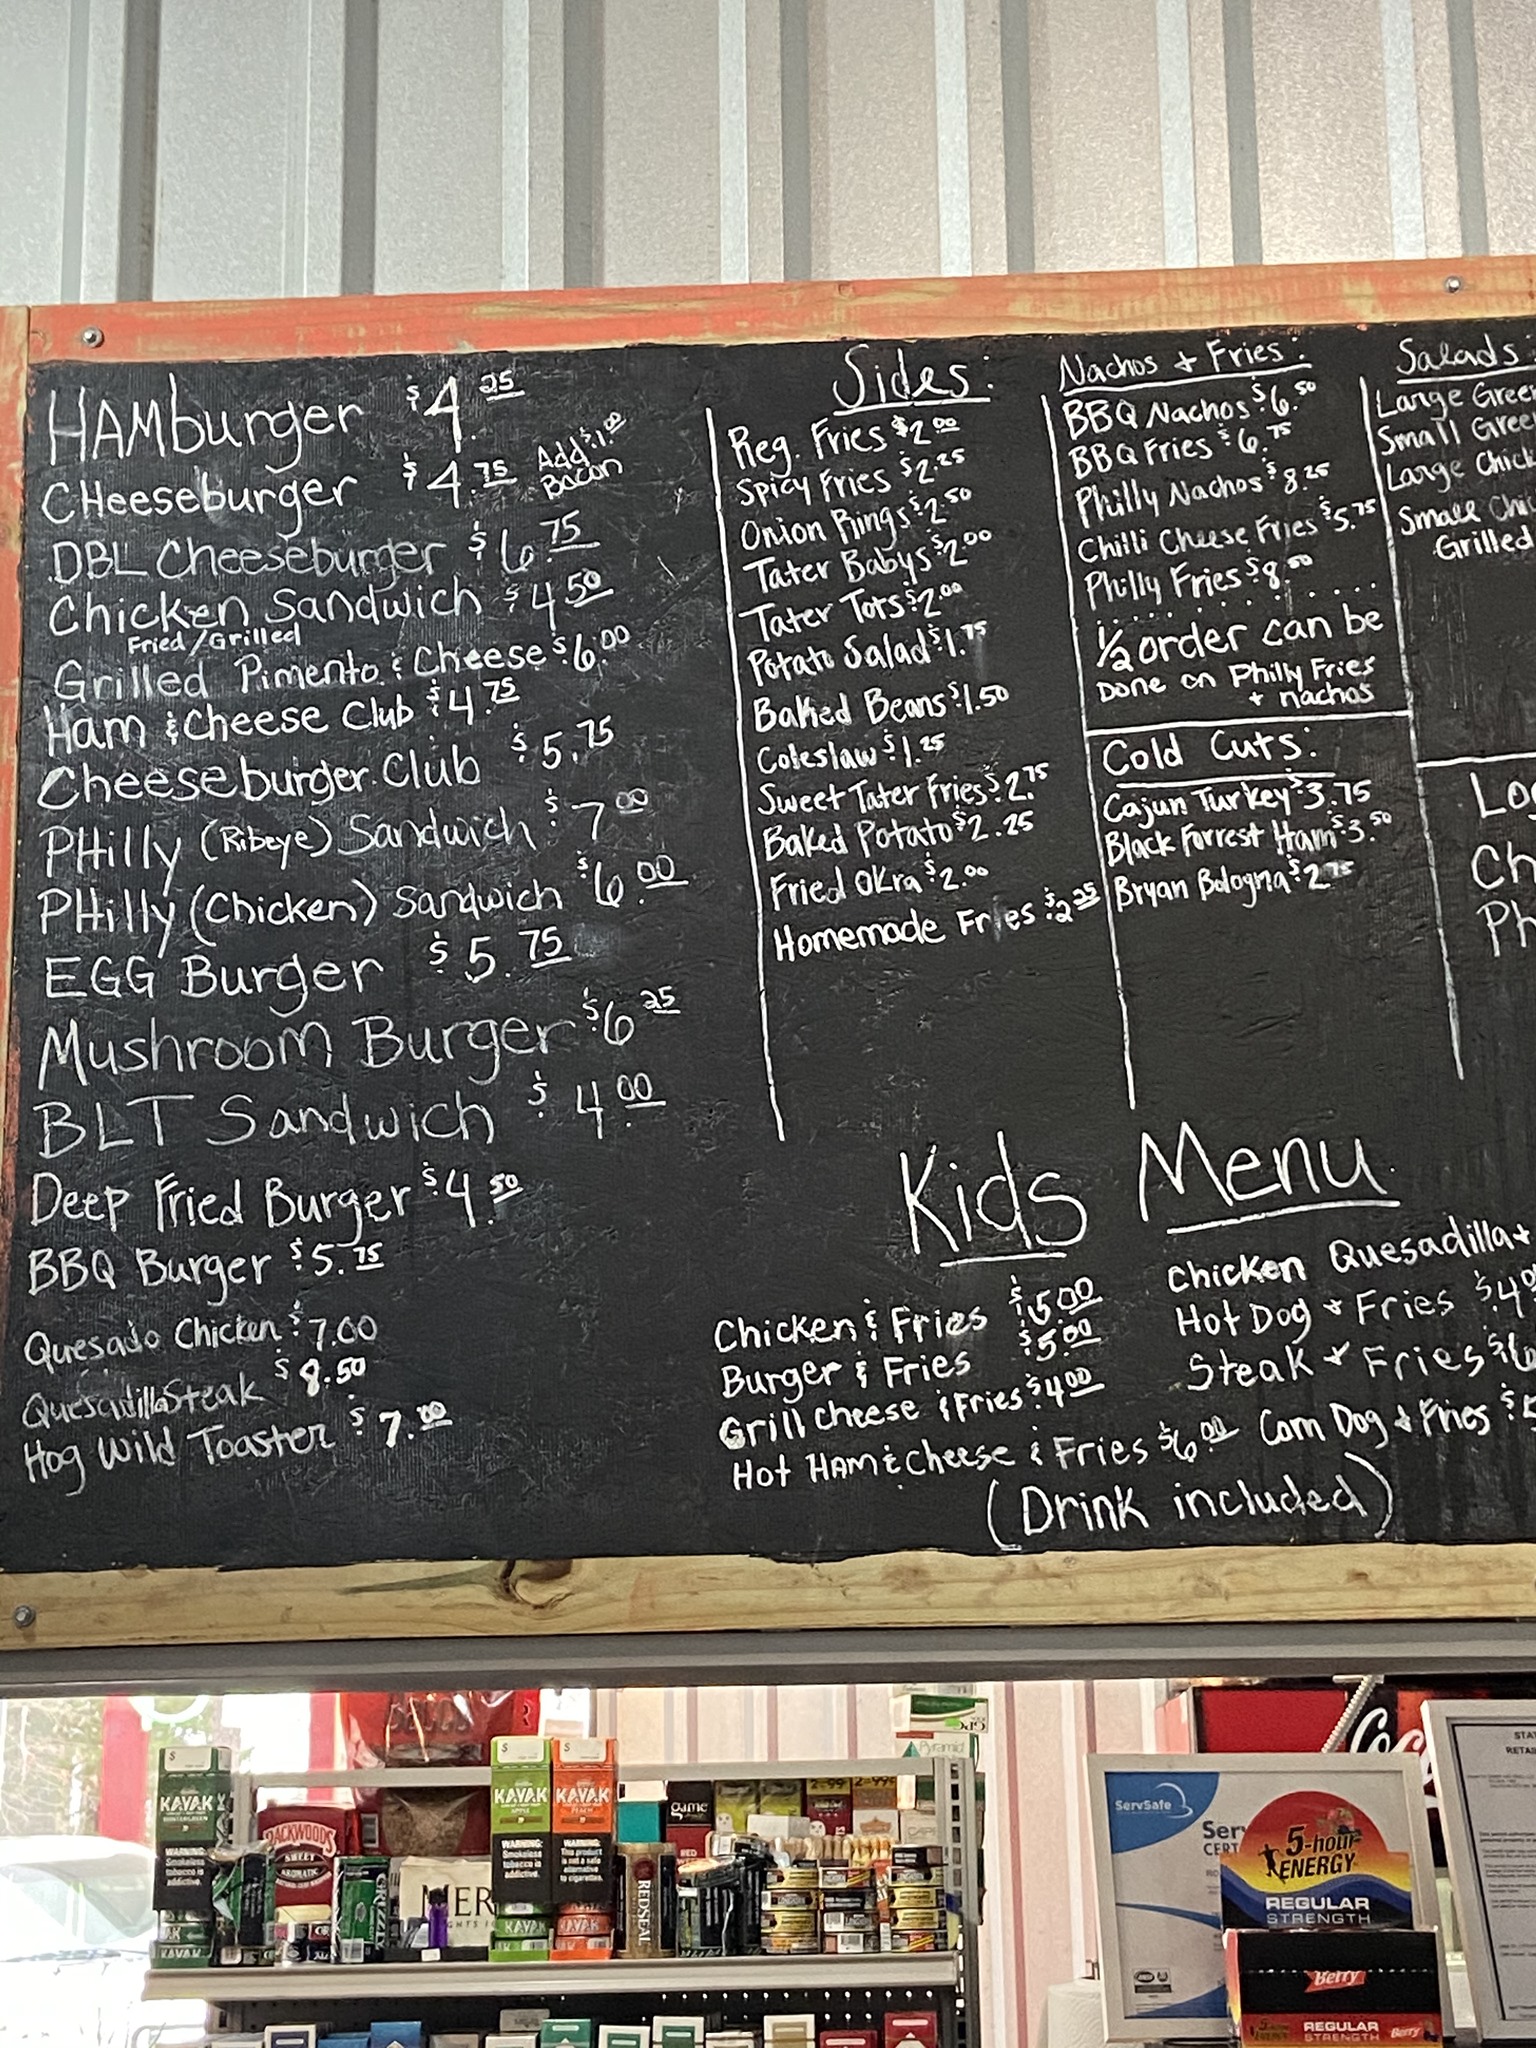 HAMburger $4.25
CHeeseburger $4.75 Add $1.00
Bacon
DBL Cheeseburger $6.75
Chicken Sandwich $4.50
Fried/Grilled
Grilled Pimento & Cheese $6.00
Ham & Cheese Club $4.75
Cheeseburger Club $5.75
PHilly (Ribeye) Sandwich $7.00
PHilly (Chicken) Sandwich $6.00
EGG Burger $5.75
Mushroom Burger $6.25
BLT Sandwich $4.00
Deep Fried Burger $4.50
BBQ Burger $5.75
Quesado Chicken $7.00
Quesadilla Steak $8.50
Hog Wild Toaster $7.00
Sides:
Reg. Fries $2.00
Spicy Fries $2.25
Onion Rings $2.50
Tater Babys $2.00
Tater Tots $2.00
Potato Salad $1.75
Baked Beans $1.50
Coleslaw $1.25
Sweet Tater Fries $2.75
Baked Potato $2.25
Fried Okra $2.00
Homemade Fries $2.25
Nachos + Fries:
BBQ Nachos $6.50
BBQ Fries $6.75
Philly Nachos $8.25
Chilli Cheese Fries $5.75
Philly Fries $8.50
1/2 order can be
Done on Philly Fries
+ nachos
Cold Cuts:
Cajun Turkey $3.75
Black Forrest Ham $3.50
Bryan Bologna $2.75
Salads:
Large Gree
Small Gree
Large Chick
Small Chi
Grilled
Lo
Ch
Ph
Kids Menu
Chicken & Fries $5.00
Burger & Fries $5.00
Grill Cheese & Fries $4.00
Hot HAM & Cheese & Fries $6.00
Chicken Quesadilla +
Hot Dog + Fries $4
Steak + Fries $6
Corn Dog + Fries $
(Drink included)
KAYAK
WINTERGREEN
WARNING:
Smokeless
tobacco is
addictive.
BACKWOODS
SWEET
AROMATIC
GRIZZLY
KAYAK
APPLE
WARNING:
Smokeless
tobacco is
addictive.
KAYAK
PEACH
WARNING:
This product
is not a safe
alternative
to cigarettes.
KAYAK
KAYAK
KAYAK
REDSEAL
game
2-99¢
Pyramid
ServSafe
5-hour
ENERGY
REGULAR
STRENGTH
Berry
REGULAR
STRENGTH
Berry